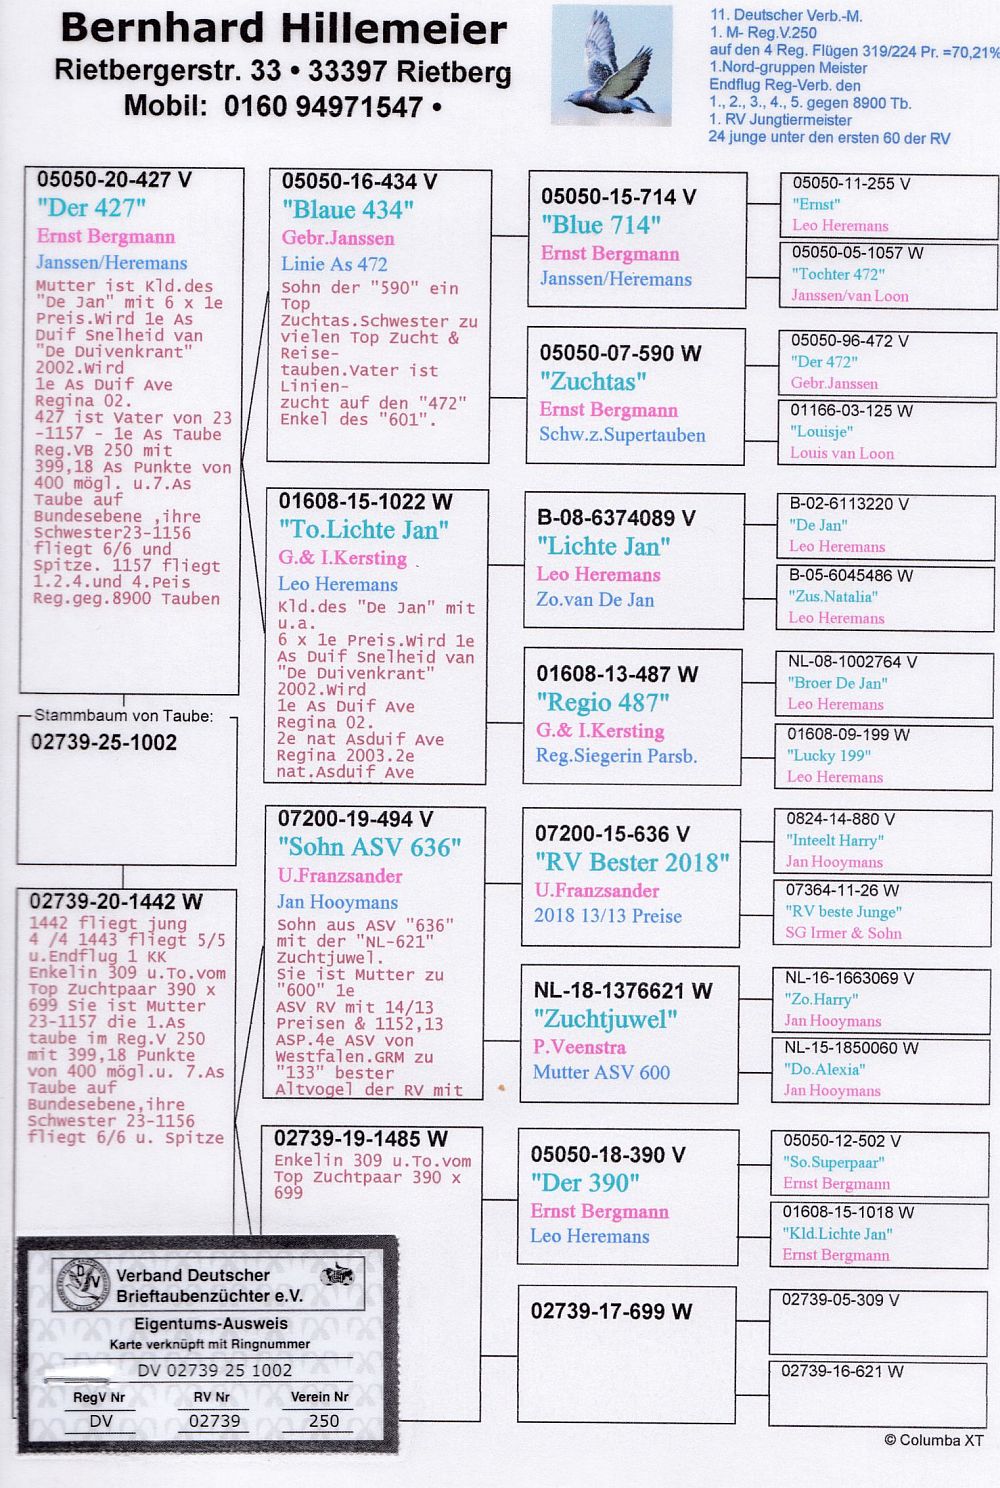 Bernhard Hillemeier
Rietbergerstr. 33 • 33397 Rietberg
Mobil: 0160 94971547 •
11. Deutscher Verb.-M.
1. M- Reg.V.250
auf den 4 Reg. Flügen 319/224 Pr. =70,21%
1.Nord-gruppen Meister
Endflug Reg-Verb. den
1., 2., 3., 4., 5. gegen 8900 Tb.
1. RV Jungtiermeister
24 junge unter den ersten 60 der RV
05050-20-427 V
"Der 427"
Ernst Bergmann
Janssen/Heremans
Mutter ist Kld.des
"De Jan" mit 6 x 1e
Preis.Wird 1e As
Duif Snelheid van
"De Duivenkrant"
2002.Wird
1e As Duif Ave
Regina 02.
427 ist Vater von 23
-1157 - 1e As Taube
Reg.VB 250 mit
399,18 As Punkte von
400 mögl. u.7.As
Taube auf
Bundesebene ,ihre
Schwester23-1156
fliegt 6/6 und
Spitze. 1157 fliegt
1.2.4.und 4.Peis
Reg.geg.8900 Tauben
Stammbaum von Taube:
02739-25-1002
02739-20-1442 W
1442 fliegt jung
4 /4 1443 fliegt 5/5
u.Endflug 1 KK
Enkelin 309 u.To.vom
Top Zuchtpaar 390 x
699 Sie ist Mutter
23-1157 die 1.As
taube im Reg.V 250
mit 399,18 Punkte
von 400 mögl.u. 7.As
Taube auf
Bundesebene,ihre
Schwester 23-1156
fliegt 6/6 u. Spitze
05050-16-434 V
"Blaue 434"
Gebr.Janssen
Linie As 472
Sohn der "590" ein
Top
Zuchtas.Schwester zu
vielen Top Zucht &
Reise-
tauben.Vater ist
Linien-
zucht auf den "472"
Enkel des "601".
01608-15-1022 W
"To.Lichte Jan"
G.& I.Kersting
Leo Heremans
Kld.des "De Jan" mit
u.a.
6 x 1e Preis.Wird 1e
As Duif Snelheid van
"De Duivenkrant"
2002.Wird
1e As Duif Ave
Regina 02.
2e nat Asduif Ave
Regina 2003.2e
nat.Asduif Ave
07200-19-494 V
"Sohn ASV 636"
U.Franzsander
Jan Hooymans
Sohn aus ASV "636"
mit der "NL-621"
Zuchtjuwel.
Sie ist Mutter zu
"600" 1e
ASV RV mit 14/13
Preisen & 1152,13
ASP.4e ASV von
Westfalen.GRM zu
"133" bester
Altvogel der RV mit
02739-19-1485 W
Enkelin 309 u.To.vom
Top Zuchtpaar 390 x
699
05050-15-714 V
"Blue 714"
Ernst Bergmann
Janssen/Heremans
05050-07-590 W
"Zuchtas"
Ernst Bergmann
Schw.z.Supertauben
B-08-6374089 V
"Lichte Jan"
Leo Heremans
Zo.van De Jan
01608-13-487 W
"Regio 487"
G.& I.Kersting
Reg.Siegerin Parsb.
07200-15-636 V
"RV Bester 2018"
U.Franzsander
2018 13/13 Preise
NL-18-1376621 W
"Zuchtjuwel"
P.Veenstra
Mutter ASV 600
05050-18-390 V
"Der 390"
Ernst Bergmann
Leo Heremans
02739-17-699 W
05050-11-255 V
"Ernst"
Leo Heremans
05050-05-1057 W
"Tochter 472"
Janssen/van Loon
05050-96-472 V
"Der 472"
Gebr.Janssen
01166-03-125 W
"Louisje"
Louis van Loon
B-02-6113220 V
"De Jan"
Leo Heremans
B-05-6045486 W
"Zus.Natalia"
Leo Heremans
NL-08-1002764 V
"Broer De Jan"
Leo Heremans
01608-09-199 W
"Lucky 199"
Leo Heremans
0824-14-880 V
"Inteelt Harry"
Jan Hooymans
07364-11-26 W
"RV beste Junge"
SG Irmer & Sohn
NL-16-1663069 V
"Zo.Harry"
Jan Hooymans
NL-15-1850060 W
"Do.Alexia"
Jan Hooymans
05050-12-502 V
"So.Superpaar"
Ernst Bergmann
01608-15-1018 W
"Kld.Lichte Jan"
Ernst Bergmann
02739-05-309 V
02739-16-621 W
© Columba XT
DV
Verband Deutscher
Brieftaubenzüchter e.V.
Eigentums-Ausweis
Karte verknüpft mit Ringnummer
DV 02739 25 1002
RegV Nr
RV Nr
Verein Nr
DV
02739
250